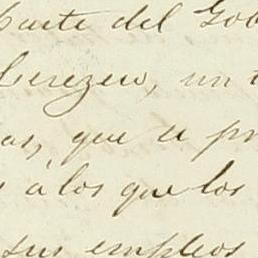 parte del Gob
Cerezeu, un t
as, que a pr
s á los que los
sus empleos